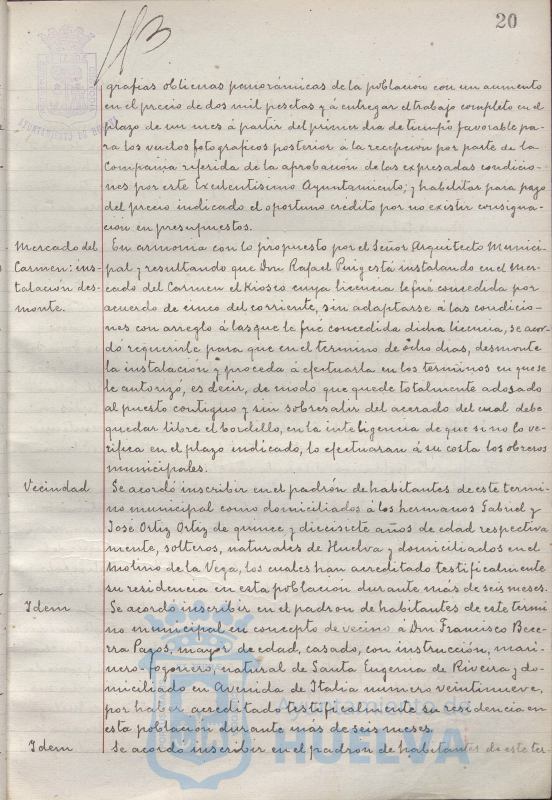 20
113
AYUNTAMIENTO DE HUELVA
grafias oblicuas panorámicas de la poblacion con un aumento
en el precio de dos mil pesetas y á entregar el trabajo completo en el
plazo de un mes á partir del primer dia de tiempo favorable pa-
ra los vuelos fotograficos posterior á la recepcion por parte de la
Compañia referida de la aprobacion de las expresadas condicio-
nes por este Excelentísimo Ayuntamiento; y habilitar para pago
del precio indicado el oportuno crédito por no existir consigna-
ción en presupuestos.
Mercado del
Carmen: ins-
talación des-
monte.
En armonia con lo propuesto por el Señor Arquitecto Munici-
pal y resultando que Don Rafael Puig está instalando en el Mer-
cado del Carmen el Kiosco cuya licencia le fué concedida por
acuerdo de cinco del corriente, sin adaptarse á las condicio-
nes con arreglo á las que le fué concedida dicha licencia, se acor-
dó requerirle para que en el termino de ocho dias, desmonte
la instalación y proceda á efectuarla en los terminos en que se
le autorizó, es decir, de modo que quede totalmente adosado
al puesto contiguo y sin sobresalir del acerado del cual debe
quedar libre el bordillo, en la inteligencia de que si no lo ve-
rifica en el plazo indicado, lo efectuaran á su costa los obreros
municipales.
Vecindad
Se acordó inscribir en el padrón de habitantes de este termi-
no municipal como domiciliados á los hermanos Gabriel y
José Ortiz Ortiz de quince y diecisiete años de edad respectiva
mente, solteros, naturales de Huelva y domiciliados en el
Molino de la Vega, los cuales han acreditado testificalmente
su residencia en esta población durante más de seis meses.
Idem
Se acordó inscribir en el padron de habitantes de este térmi
no municipal en concepto de vecino á Don Francisco Bece-
rra Pagos, mayor de edad, casado, con instrucción, mari-
nero-fogonero, natural de Santa Eugenia de Riveira y do-
miciliado en Avenida de Italia numero veintinueve,
por haber acreditado testificalmente su residencia en
esta población durante más de seis meses.
Idem
Se acordó inscribir en el padrón de habitantes de este ter-
Ayuntamiento de
HUELVA